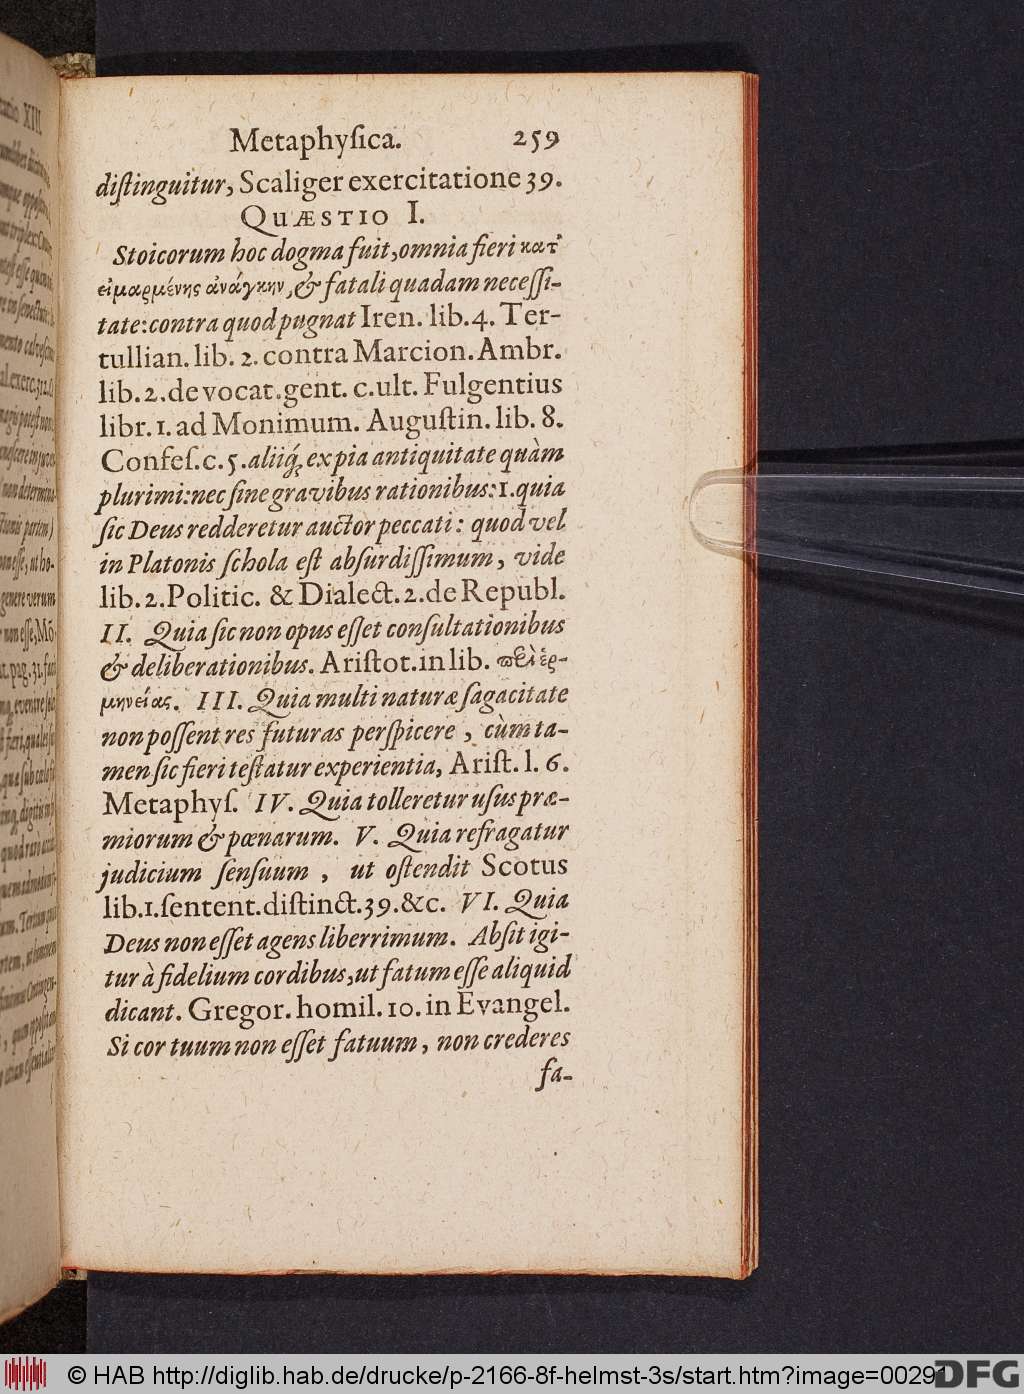 Metaphyſica. 259
diſtinguitur, Scaliger exercitatione 39.
QUÆSTIO I.
Stoicorum hoc dogma fuit, omnia fieri κατ'
εἱμαρμένης ἀνάγκην, & fatali quadam neceſſi-
tate: contra quod pugnat Iren. lib. 4. Ter-
tullian. lib. 2. contra Marcion. Ambr.
lib. 2. de vocat. gent. c. ult. Fulgentius
libr. 1. ad Monimum. Auguſtin. lib. 8.
Confeſ. c. 5. aliiq; ex pia antiquitate quàm
plurimi: nec ſine gravibus rationibus: 1. quia
ſic Deus redderetur auctor peccati: quod vel
in Platonis ſchola eſt abſurdiſſimum, vide
lib. 2. Politic. & Dialect. 2. de Republ.
II. Quia ſic non opus eſſet conſultationibus
& deliberationibus. Ariſtot. in lib. περὶ ἑρ-
μηνείας. III. Quia multi naturæ ſagacitate
non poſſent res futuras perſpicere, cùm ta-
men ſic fieri teſtatur experientia, Ariſt. l. 6.
Metaphyſ. IV. Quia tolleretur uſus præ-
miorum & pœnarum. V. Quia refragatur
judicium ſenſuum, ut oſtendit Scotus
lib. 1. ſentent. diſtinct. 39. &c. VI. Quia
Deus non eſſet agens liberrimum. Abſit igi-
tur à fidelium cordibus, ut fatum eſſe aliquid
dicant. Gregor. homil. 10. in Evangel.
Si cor tuum non eſſet fatuum, non crederes
fa-
© HAB http://diglib.hab.de/drucke/p-2166-8f-helmst-3s/start.htm?image=00291
DFG